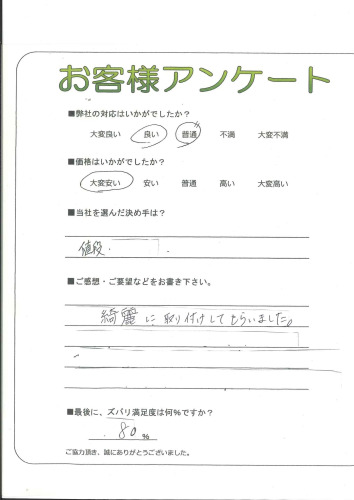 お客様アンケート
■弊社の対応はいかがでしたか？
大変良い 良い 普通 不満 大変不満
■価格はいかがでしたか？
大変安い 安い 普通 高い 大変高い
■当社を選んだ決め手は？
値段．
■ご感想・ご要望などをお書き下さい。
綺麗に取り付けしてもらいました。
■最後に、ズバリ満足度は何%ですか？
80%
ご協力頂き、誠にありがとうございました。